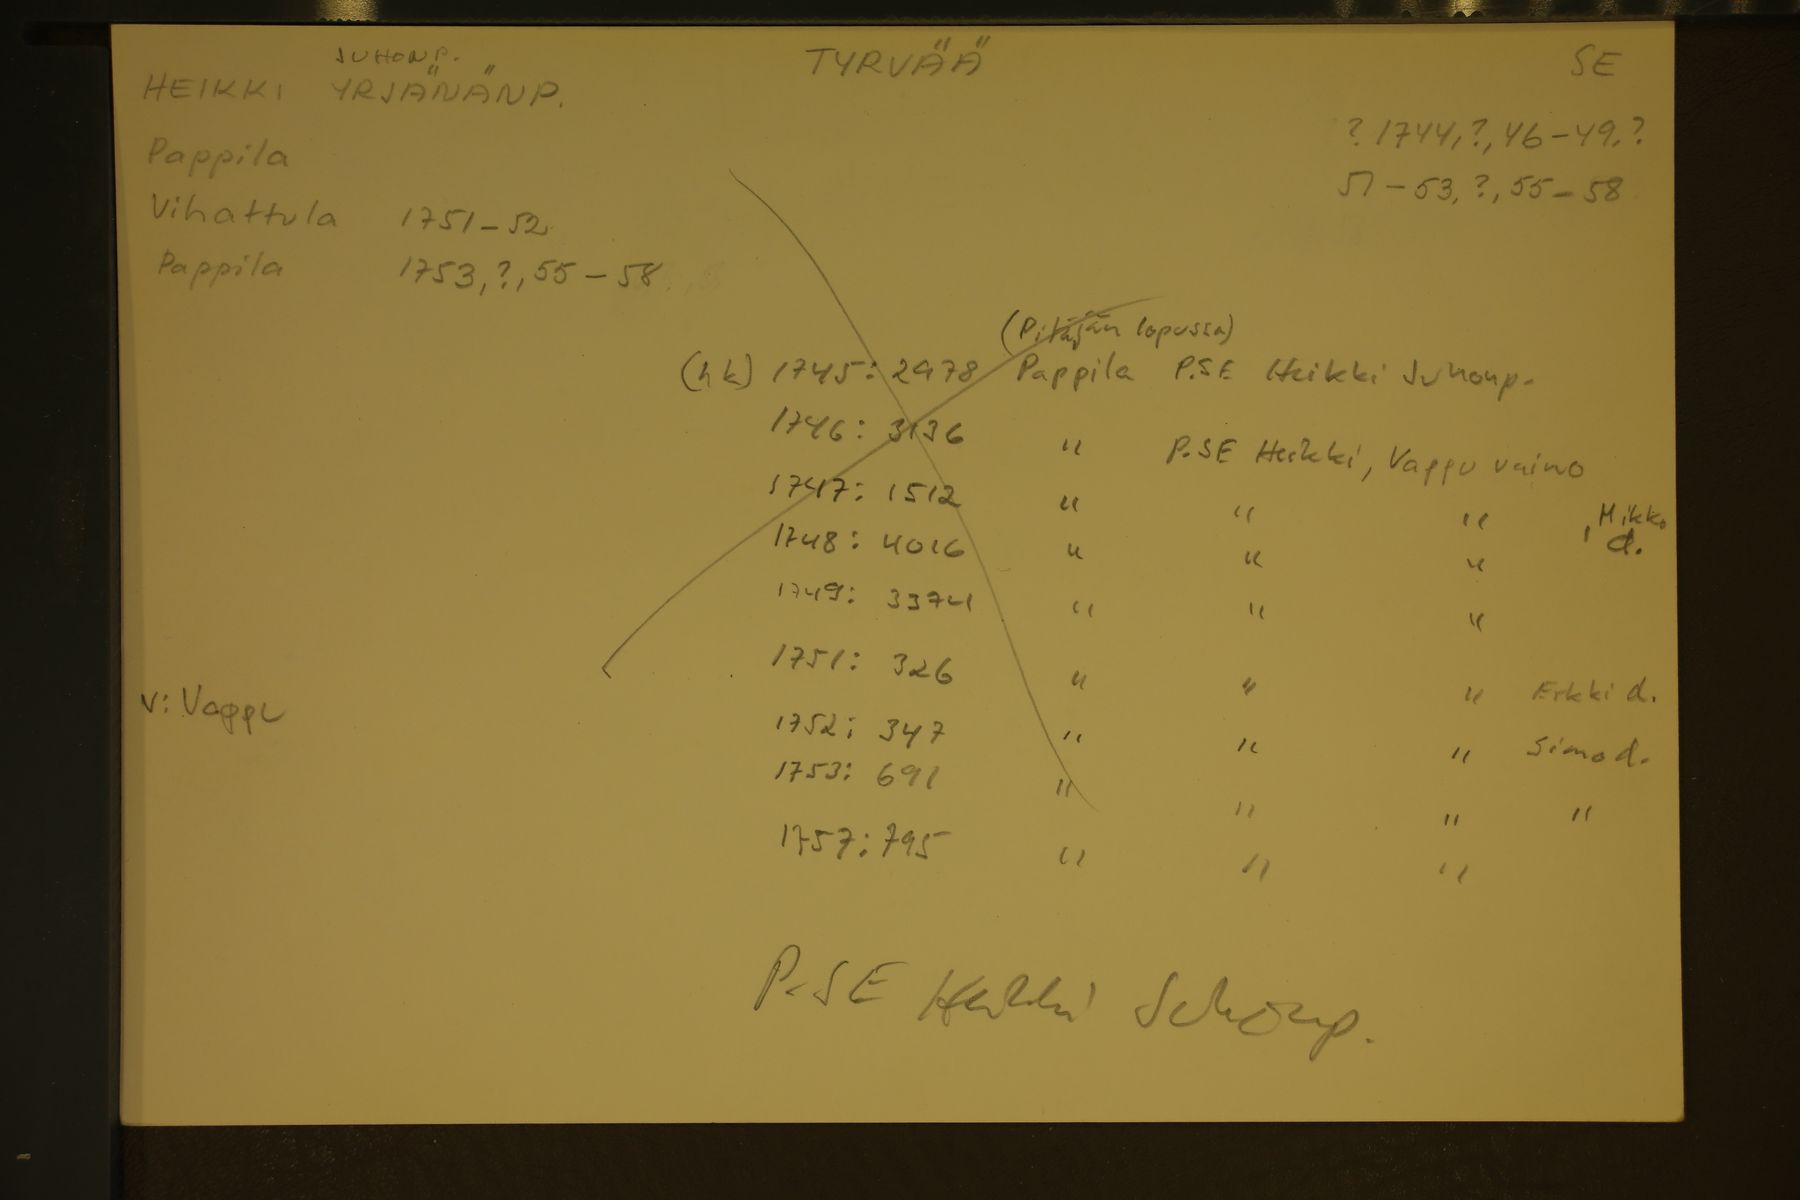 JUHONP.
HEIKKI YRJÄNÄNP. TYRVÄÄ SE
? 1744, ?, 46-49, ?
Pappila 51-53, ?, 55-58
Vihattula 1751-52
Pappila 1753, ?, 55-58
(Pitäjän lopussa)
(hk) 1745: 2978 Pappila P.SE Heikki Juhonp.
1746: 3136 " P.SE Heikki, Vappu vaimo
1747: 1512 " " " , Mikko d.
1748: 4016 " " "
1749: 3374 " " "
1751: 326 " " " Erkki d.
v: Vappu
1752: 347 " " " Simo d.
1753: 691 " " " "
1757: 795 " " "
P.SE Heikki Juhonp.